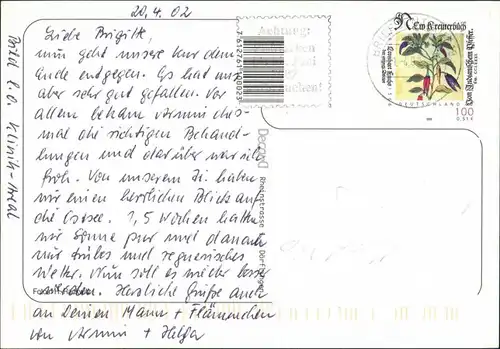 20.4.02
Liebe Brigitte,
nun geht unsere Kur dem
Ende entgegen. Es hat uns
aber sehr gut gefallen. Vor
allem bekam Armin dies-
mal die richtigen Behand-
lungen und darüber war ich
froh. Von unserem Zi. haben
wir einen herrlichen Blick auf
die Ostsee. 1,5 Wochen hatten
wir Sonne pur und danach
nur trübes und regnerisches
Wetter. Nun soll es wieder besser
werden. Herzliche Grüße auch
an Deinen Mann + Flämmchen
von Armin + Helga
Klinik-Areal
Achtung:
New Kreüterbüch
Leonhart Fuchs
Von Indianischem Pfeffer.
DEUTSCHLAND
100
0,51 €
Rheinstrasse